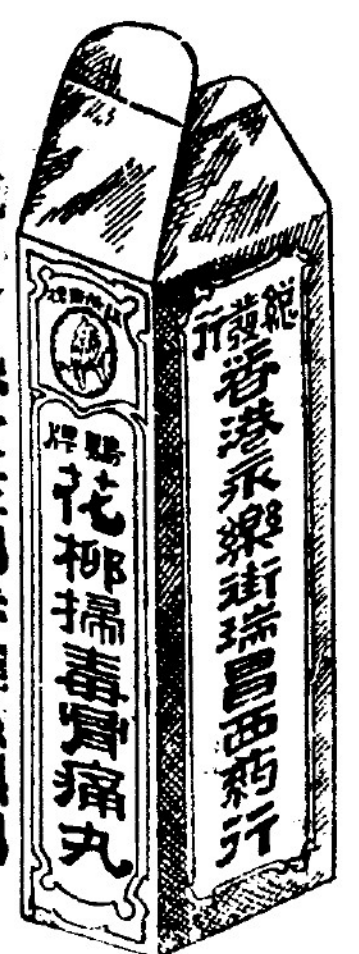 總發行
香港永樂街瑞昌西药行
鷄牌
花柳掃毒骨痛丸